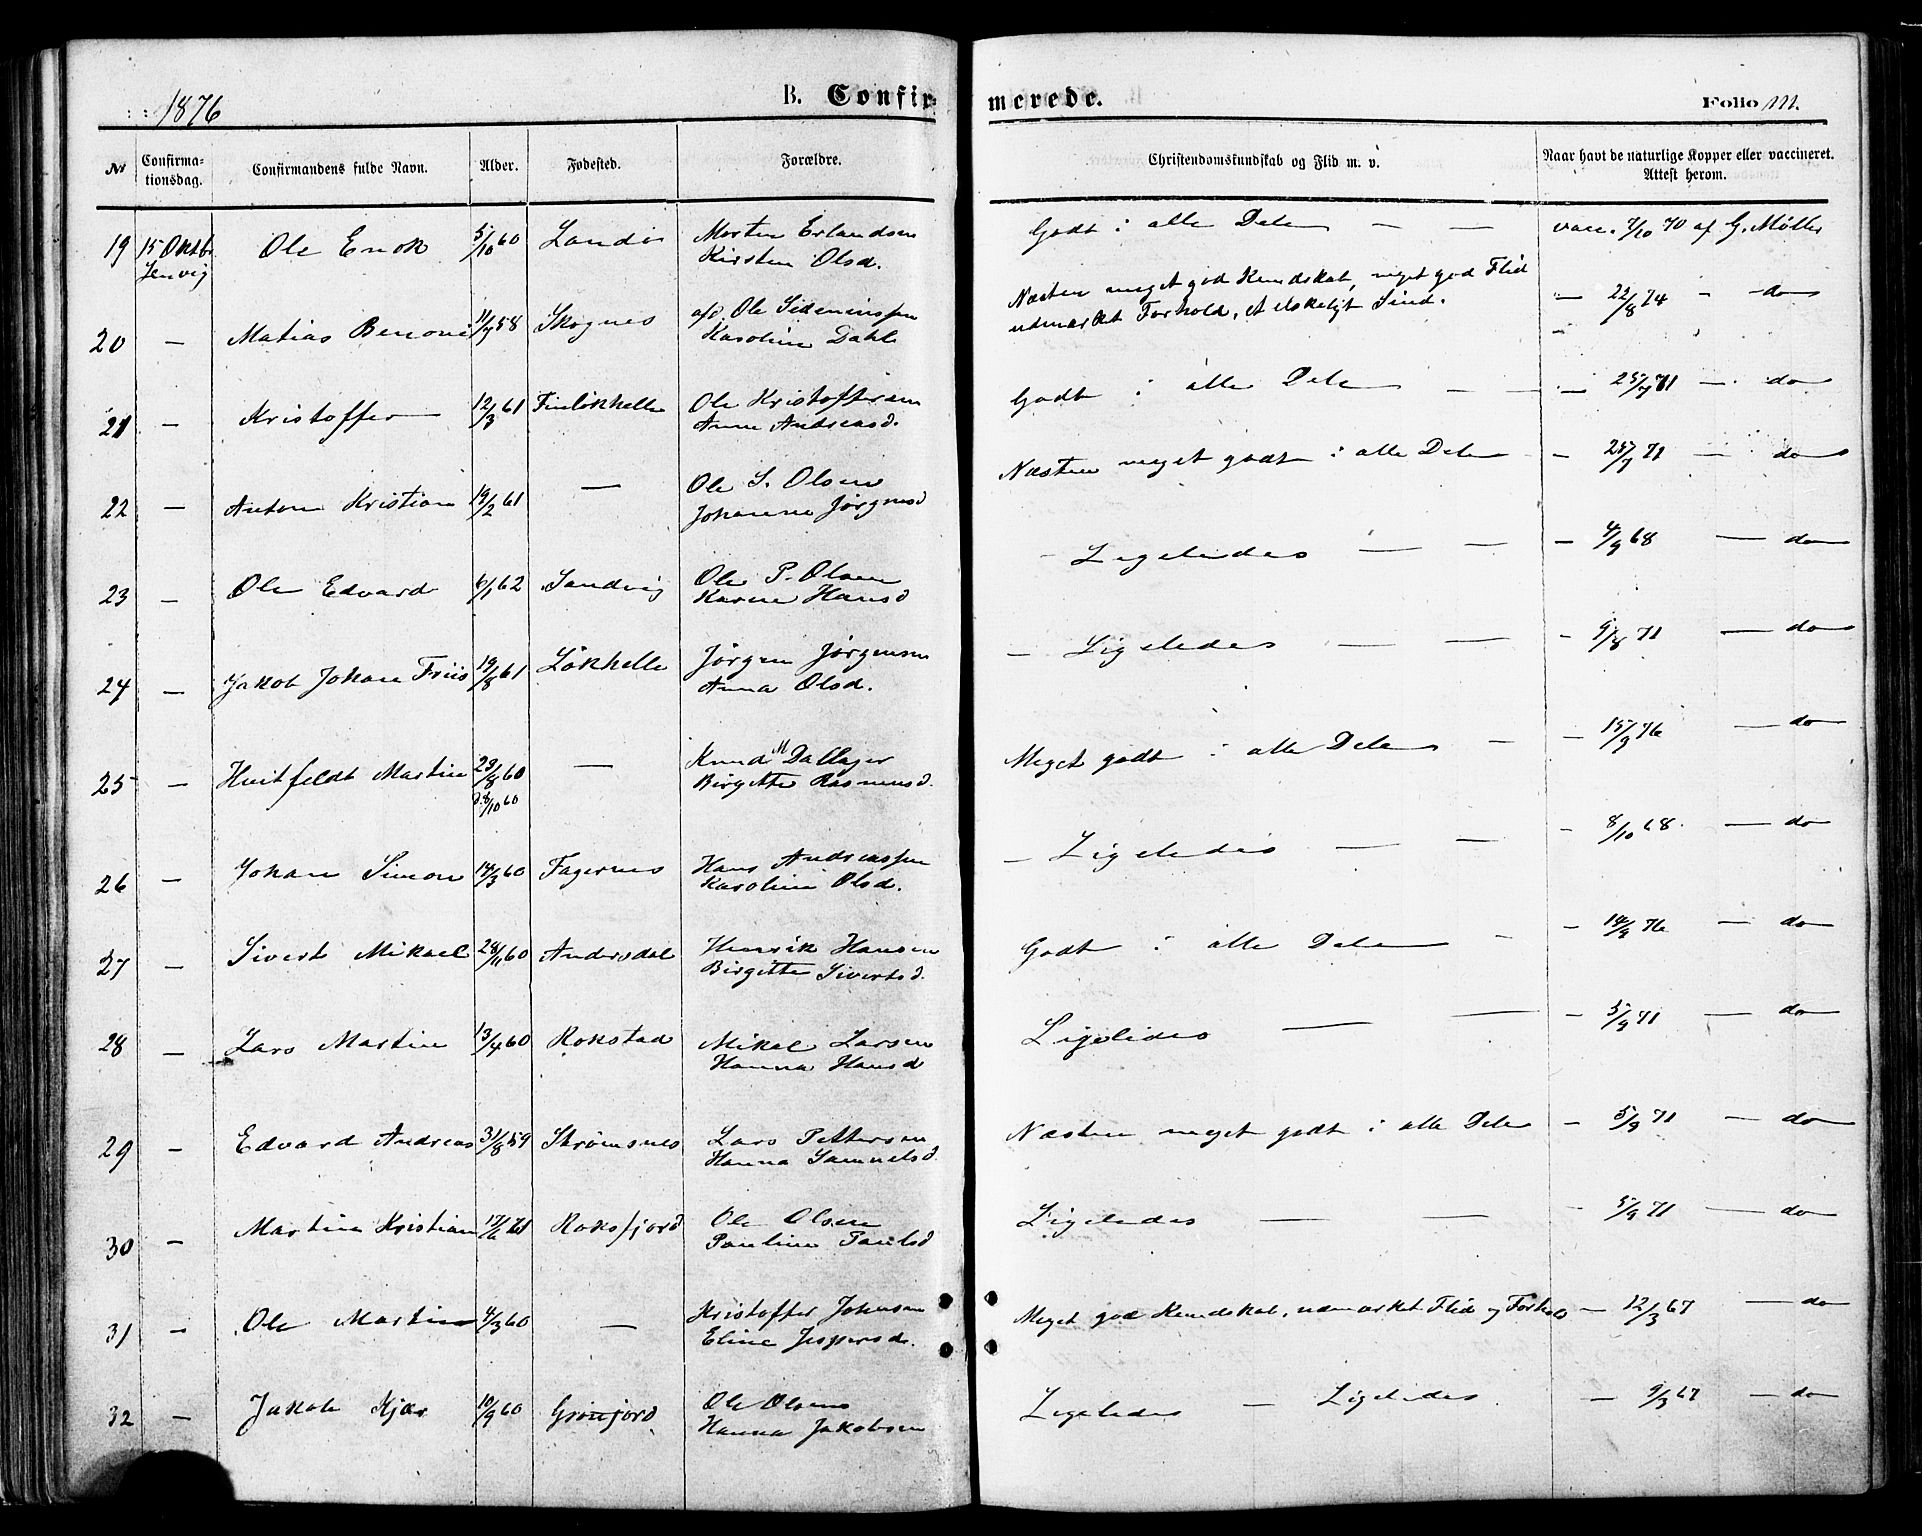 1876
B. Confirmerede.
Folio 111.
Nr Confirmationsdag. Confirmandens fulde Navn. Alder. Fødested. Forældre. Christendomskundskab og Flid m. v. Naar havt de naturlige Kopper eller vaccineret. Attest herom.
19 15 Oktbr Ole Enok 5/10 60 Morten Erlandsen Godt i alle Dele — — vacc. 7/10 70 af G. Møller
Kirsten Olsd.
20 — Matias Benoni 11/9 58 Skognes afd. Ole Sideninssen Næsten meget god Kundskab, meget god Flid — 22/8 74 — do
Karoline Dahl udmærket Forhold, et elskeligt Sind.
21 — Kristoffer 12/3 61 Finløkhelle Ole Kristoffersen Godt i alle Dele — — 25/7 71 — do
Anne Andreasd.
22 — Anton Kristian 19/2 61 — Ole S. Olsen Næsten meget godt i alle Dele — 25/7 71 — do
Johanne Jørgensd
23 — Ole Edvard 6/1 62 Sandvig Ole P. Olsen — Ligeledes — — — 4/9 68 — do
Karen Hansd
24 — Jakob Johan Friis 19/8 61 Løkhelle Jørgen Jørgensen — Ligeledes — — — 9/8 71 — do
Anna Olsd.
25 — Huitfeldt Martin 23/8 60 — Knud M Dallager Meget godt i alle Dele — — 15/9 76 — do
d. 8/10 60 Birgitte Rasmusd.
26 — Johan Simon 14/3 60 Fagernes Hans Andreassen — Ligeledes — — — 8/10 68. — do
Karoline Olsd.
27 — Sivert Mikael 28/11 60 Andersdal Henrik Hansen Godt i alle Dele — — 14/9 76 — do
Birgitte Sivertsd.
28 — Lars Martin 13/4 60 Rokstad Mikal Larsen Ligeledes — — — 5/9 71 — do
Hanna Hansd
29 — Edvard Andreas 31/8 59 Strømsnes Lars Pettersen Næsten meget godt i alle Dele — 5/9 71 — do
Hanna Samuelsd
30 — Martin Kristian Roksfjord Ole Olsen Ligeledes — — 5/9 71 — do
Pauline Paulsd
31 — Ole Martin 4/3 60 — Kristoffer Johnsen Meget god Kundskab, udmærket Flid og Forhold — 12/3 67 — do
Eline Jespersd.
32 — Jakob Kjær 10/9 60 Grønjord Ole Olsens Ligeledes — Ligeledes — 9/3 67 — do
Hanna Jakobsen